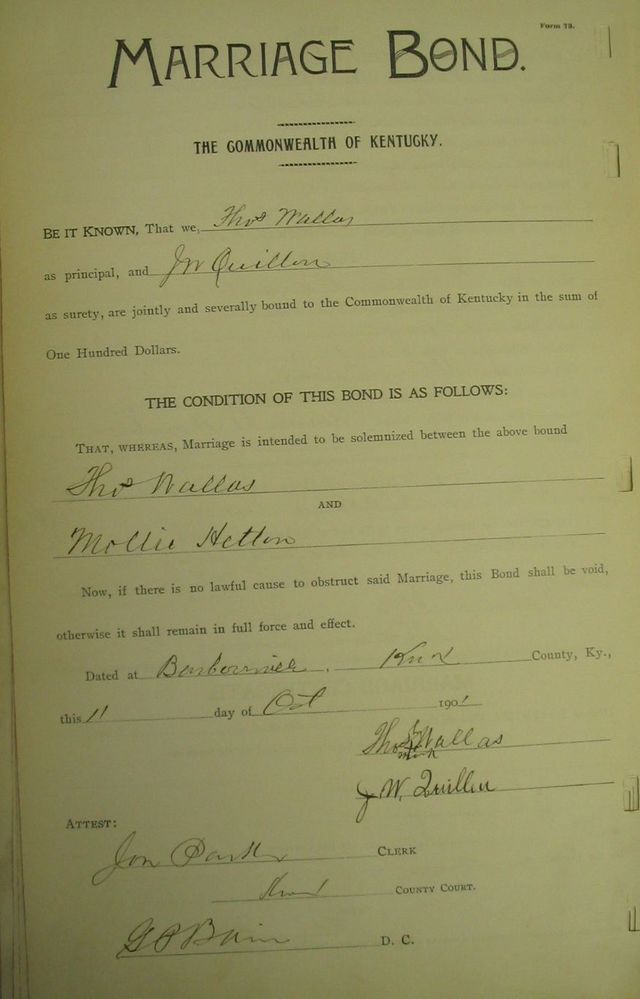 Form 73.
MARRIAGE BOND.
THE COMMONWEALTH OF KENTUCKY.
BE IT KNOWN, That we, Thos Wallas
as principal, and JW Quillen
as surety, are jointly and severally bound to the Commonwealth of Kentucky in the sum of
One Hundred Dollars.
THE CONDITION OF THIS BOND IS AS FOLLOWS:
THAT, WHEREAS, Marriage is intended to be solemnized between the above bound
Thos Wallas
AND
Mollie Helton
Now, if there is no lawful cause to obstruct said Marriage, this Bond shall be void,
otherwise it shall remain in full force and effect.
Dated at Barbourville, Knox County, Ky.,
this 11 day of Oct 1901
Thos Wallas
J W. Quillen
ATTEST:
CLERK
Knox COUNTY COURT.
D. C.